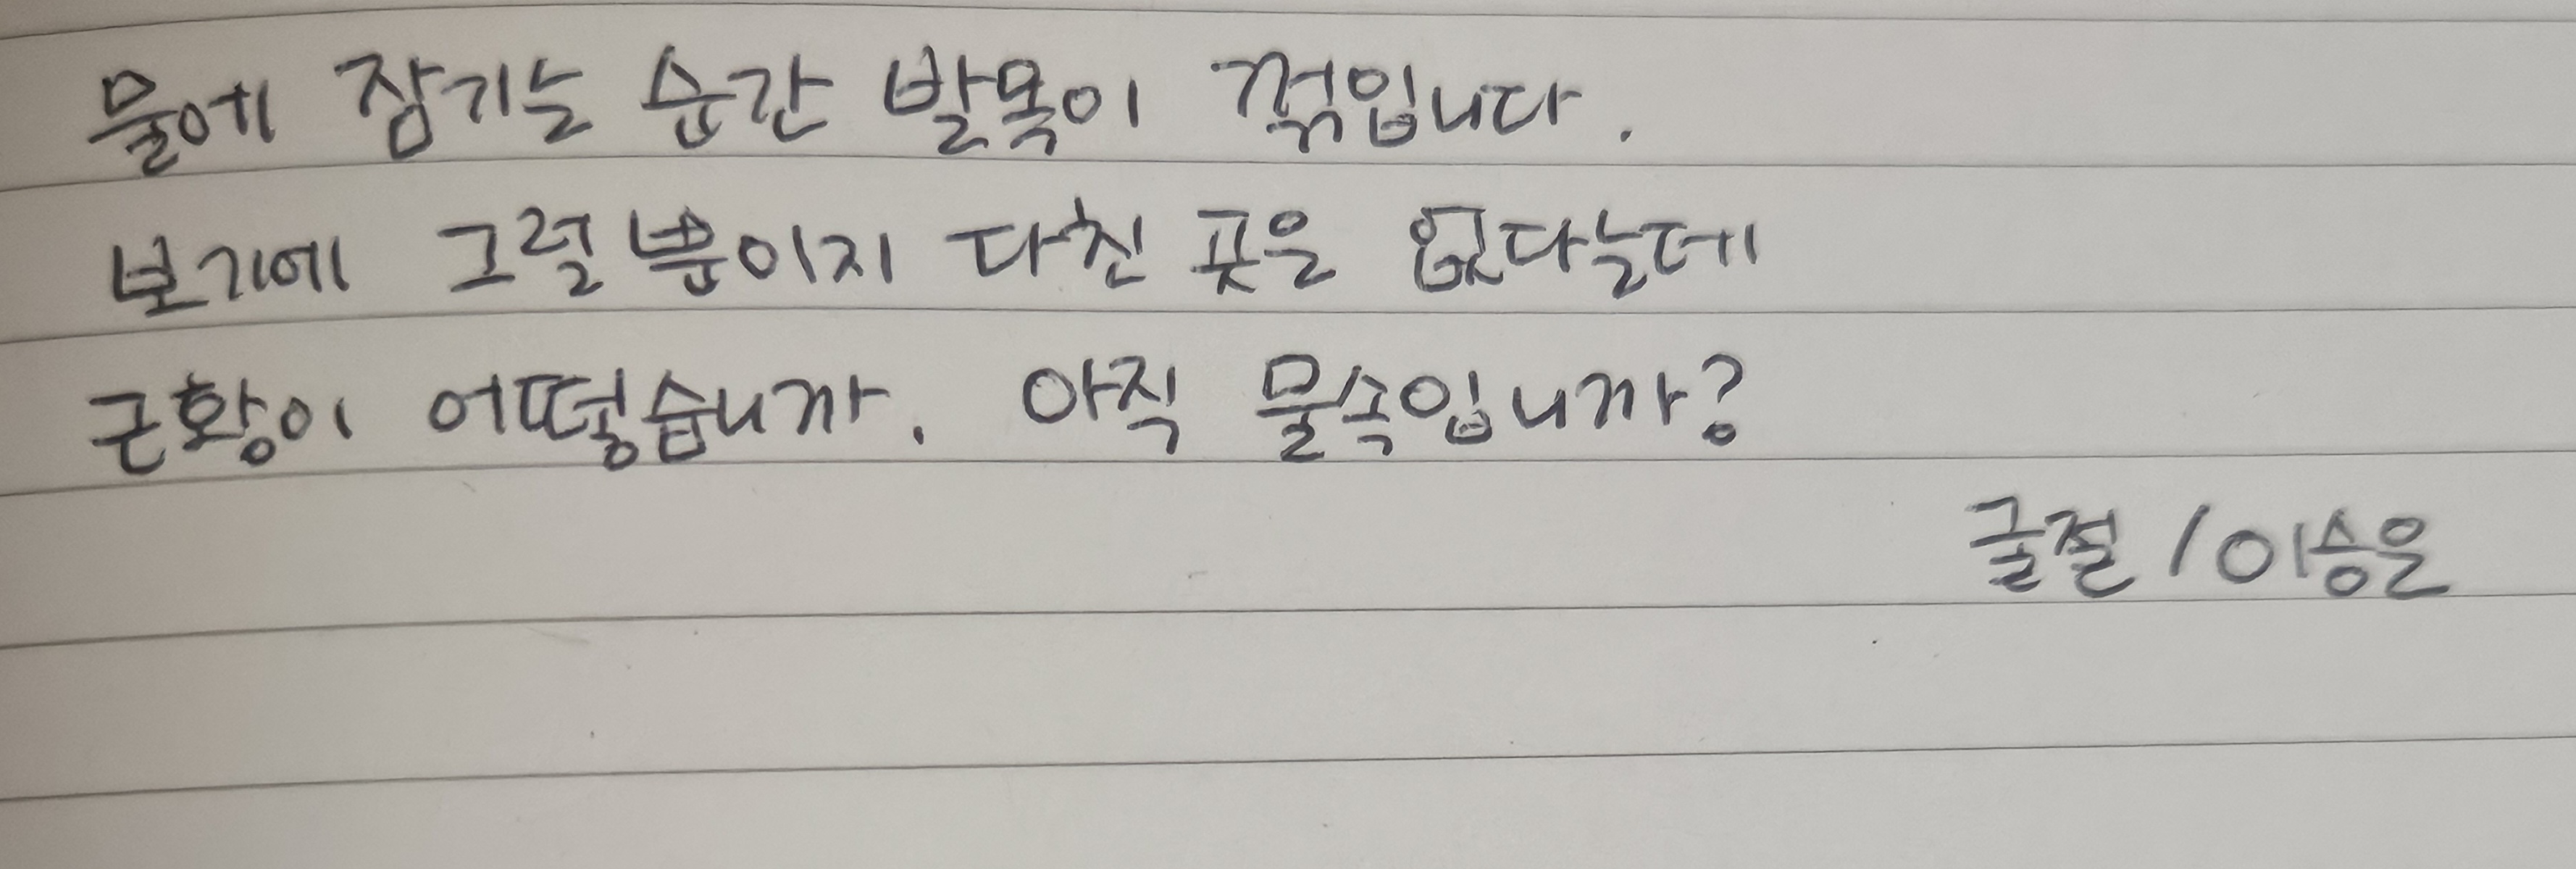 물에 잠기는 순간 발목이 꺾입니다.
보기에 그럴 뿐이지 다친 곳은 없다는데
근황이 어떻습니까. 아직 물속입니까?
굴절 / 이승은